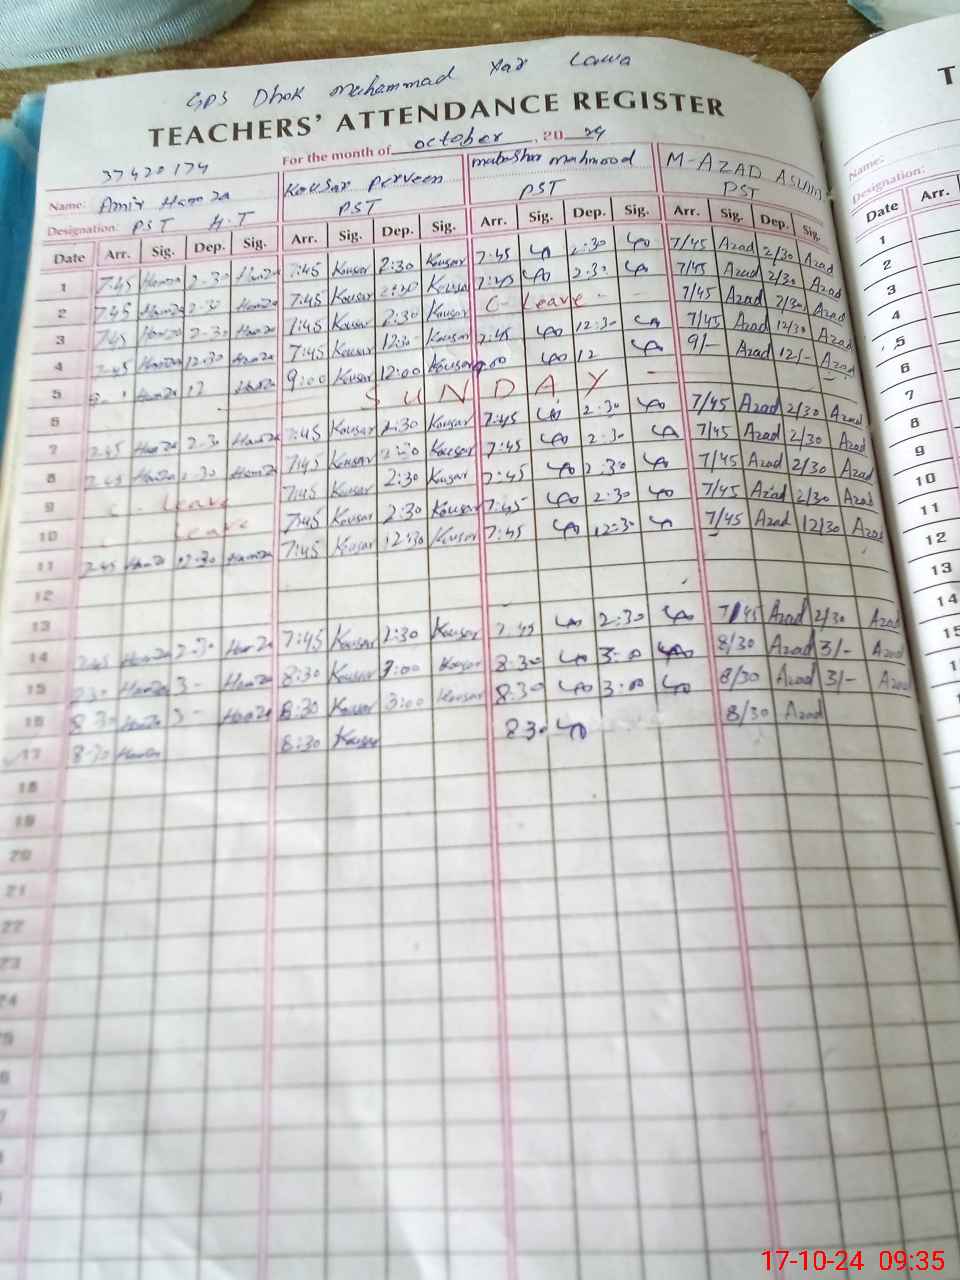 GPS Dhok muhammad Yar Lawa
TEACHERS' ATTENDANCE REGISTER
For the month of october, 20 24
37420174
Name: Amir Hamza Kousar Perveen mubashar mahmood M-AZAD ASLAM
Designation: PST H.T PST PST PST
Date Arr. Sig. Dep. Sig. Arr. Sig. Dep. Sig. Arr. Sig. Dep. Sig. Arr. Sig. Dep. Sig.
1 7:45 Hamza 2:30 Hamza 7:45 Kousar 2:30 Kousar 7:45 2:30 7/45 Azad 2/30 Azad
2 7:45 Hamza 2:30 Hamza 7:45 Kousar 2:30 Kousar 7:45 2:30 7/45 Azad 2/30 Azad
3 7:45 Hamza 2:30 Hamza 7:45 Kousar 2:30 Kousar C - Leave - - 7/45 Azad 2/30 Azad
4 7:45 Hamza 12:30 Hamza 7:45 Kousar 12:30 Kousar 7:45 12:30 7/45 Azad 12/30 Azad
5 Hamza 12 Hamza 9:00 Kousar 12:00 Kousar 9:00 12 9/- Azad 12/- Azad
6 SUNDAY
7 7:45 Hamza 2:30 Hamza 7:45 Kousar 2:30 Kousar 7:45 2:30 7/45 Azad 2/30 Azad
8 7:45 Hamza 2:30 Hamza 7:45 Kousar 2:30 Kousar 7:45 2:30 7/45 Azad 2/30 Azad
9 C - Leave 7:45 Kousar 2:30 Kousar 7:45 2:30 7/45 Azad 2/30 Azad
10 Leave 7:45 Kousar 2:30 Kousar 7:45 2:30 7/45 Azad 2/30 Azad
11 7:45 Hamza 12:30 Hamza 7:45 Kousar 12:30 Kousar 7:45 12:30 7/45 Azad 12/30 Azad
12
13
14 7:45 Hamza 2:30 Hamza 7:45 Kousar 2:30 Kousar 7:45 2:30 7/45 Azad 2/30 Azad
15 8:30 Hamza 3- Hamza 8:30 Kousar 3:00 Kousar 8:30 3:00 8/30 Azad 3/- Azad
16 8:30 Hamza 3- Hamza 8:30 Kousar 3:00 Kousar 8:30 3:00 8/30 Azad 3/- Azad
17 8:30 Hamza 8:30 Kousar 830 8/30 Azad
18
19
20
21
22
23
24
T
Name:
Designation:
Date Arr.
1
2
3
4
5
6
7
8
9
10
11
12
13
14
15
17-10-24 09:35